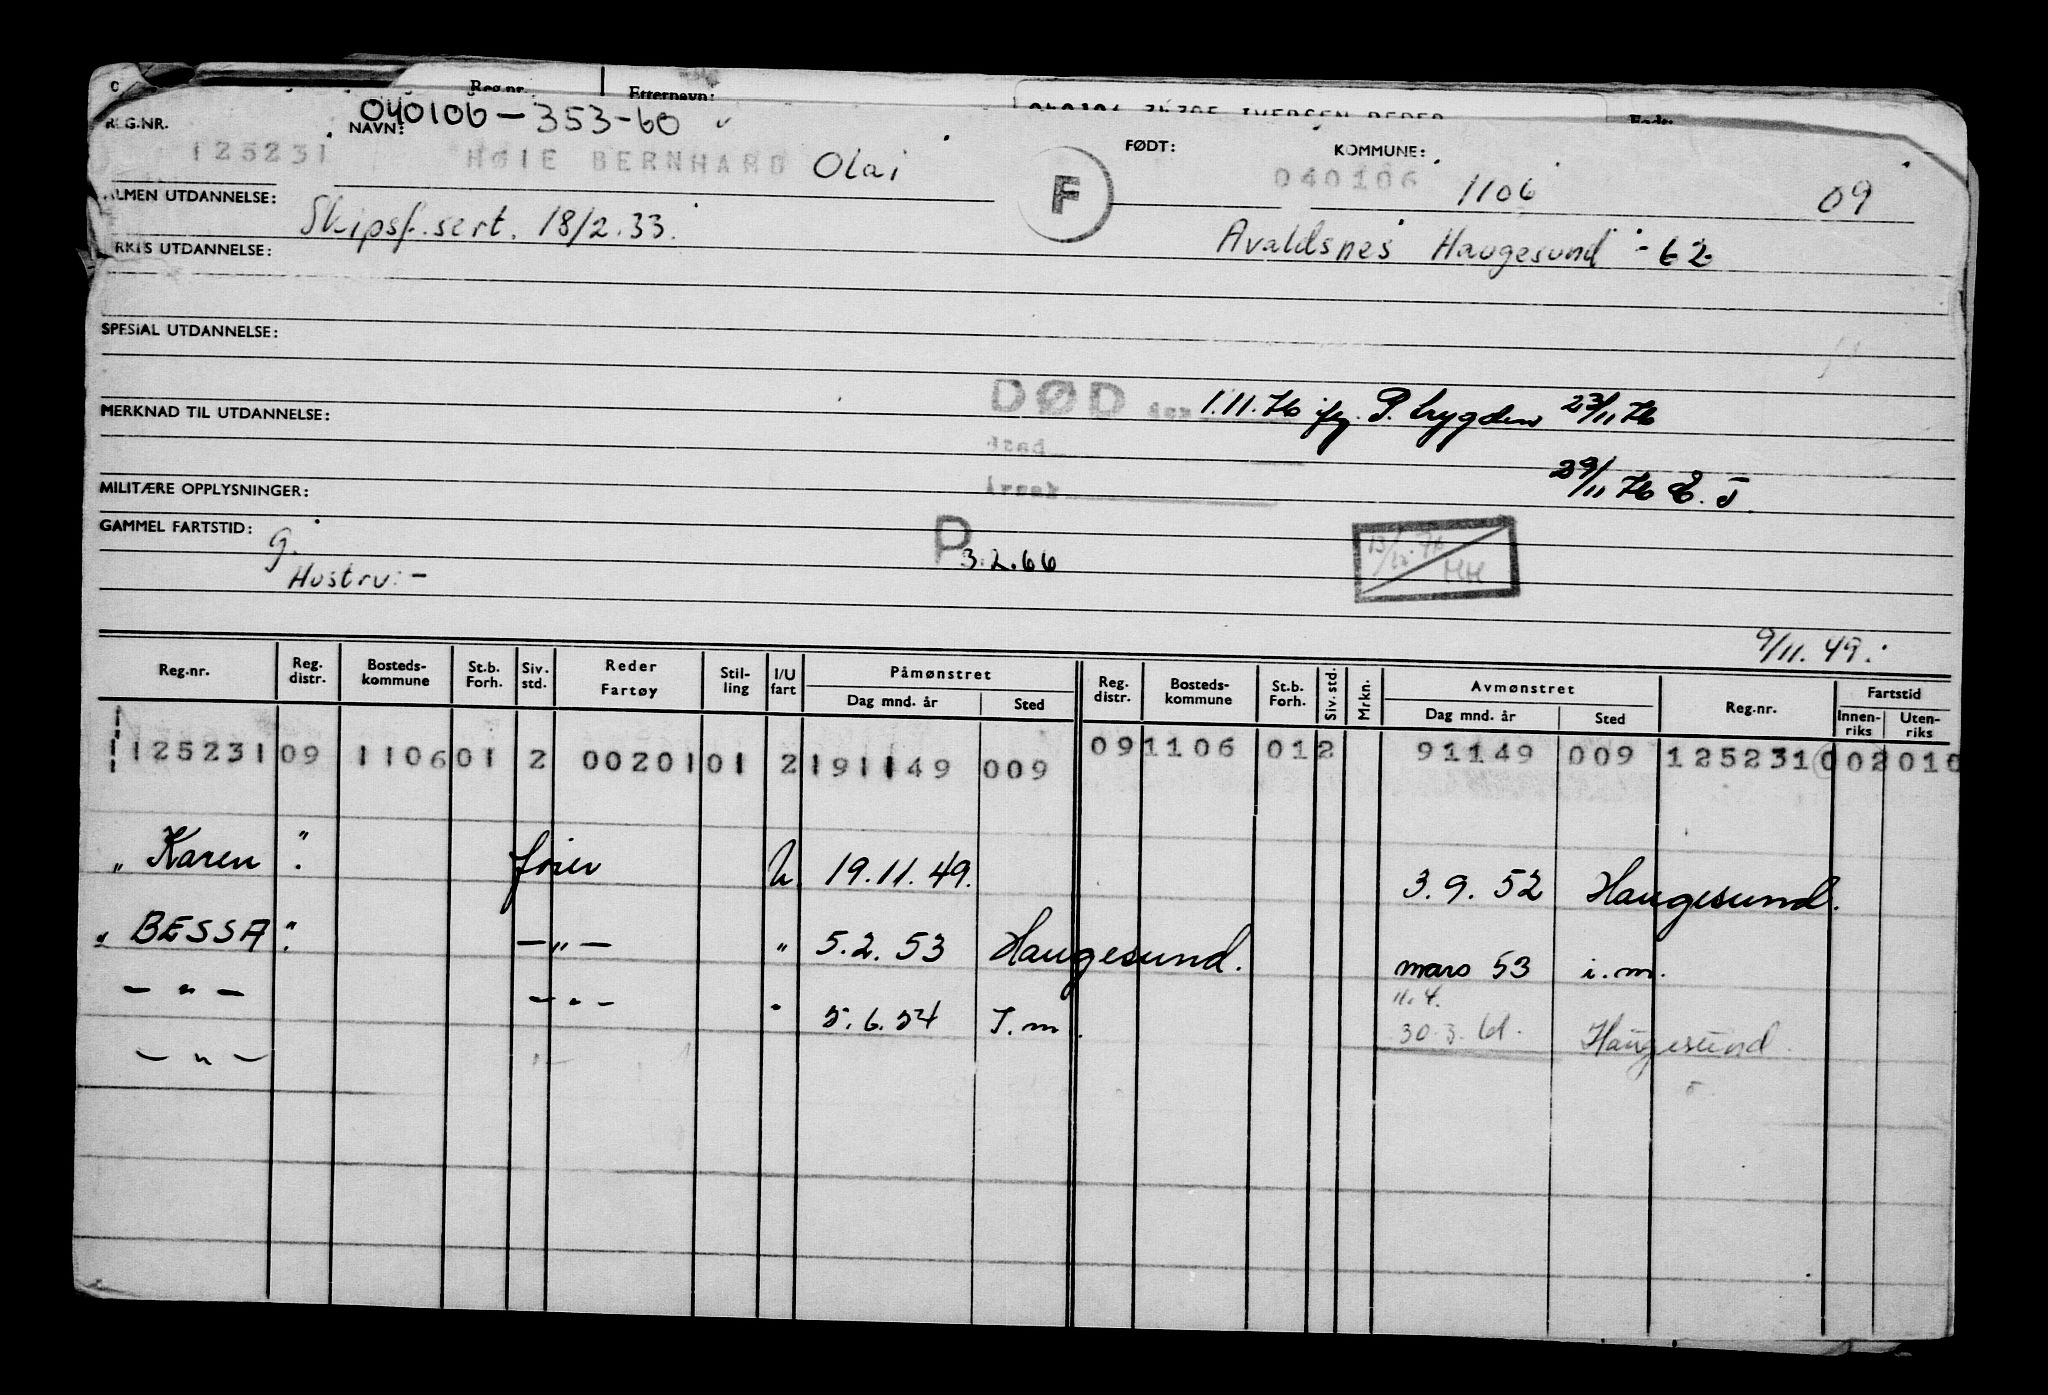 Reg.nr. Etternavn:
040106-353-60
REG.NR. NAVN: FØDT: KOMMUNE:
125231 HØIE BERNHARD Olai F 040106 1106 09
ALMEN UTDANNELSE: Skipsf.sert. 18/2.33. Avaldsnes Haugesund -62
YRKES UTDANNELSE:
SPESIAL UTDANNELSE:
DØD den 1.11.76 ifg. P. trygden 23/11 76
MERKNAD TIL UTDANNELSE:
sted
29/11 76 E. J.
MILITÆRE OPPLYSNINGER: årsak
GAMMEL FARTSTID: g.
P 3.2.66
13/12.76 HH
Hustru: -
9/11.49.
Reg.nr. Reg. distr. Bosteds-kommune St.b. Forh. Siv. std. Reder Fartøy Stil-ling I/U fart Påmønstret Dag mnd. år Sted Reg. distr. Bosteds-kommune St.b. Forh. Siv. std. Mrkn. Avmønstret Dag mnd. år Sted Reg.nr. Fartstid Innen-riks Uten-riks
125231 09 1106 01 2 00201 01 2 191149 009 09 1106 01 2 91149 009 125231 0 002 010
„ Karen ". fører U 19.11.49. 3.9.52 Haugesund.
„ BESSA ". -„- " 5.2.53 Haugesund. mars 53 i.m.
- " - - " - " 5.6.54 I.m. 11.4.
30.3.61. Haugesund.
- " -